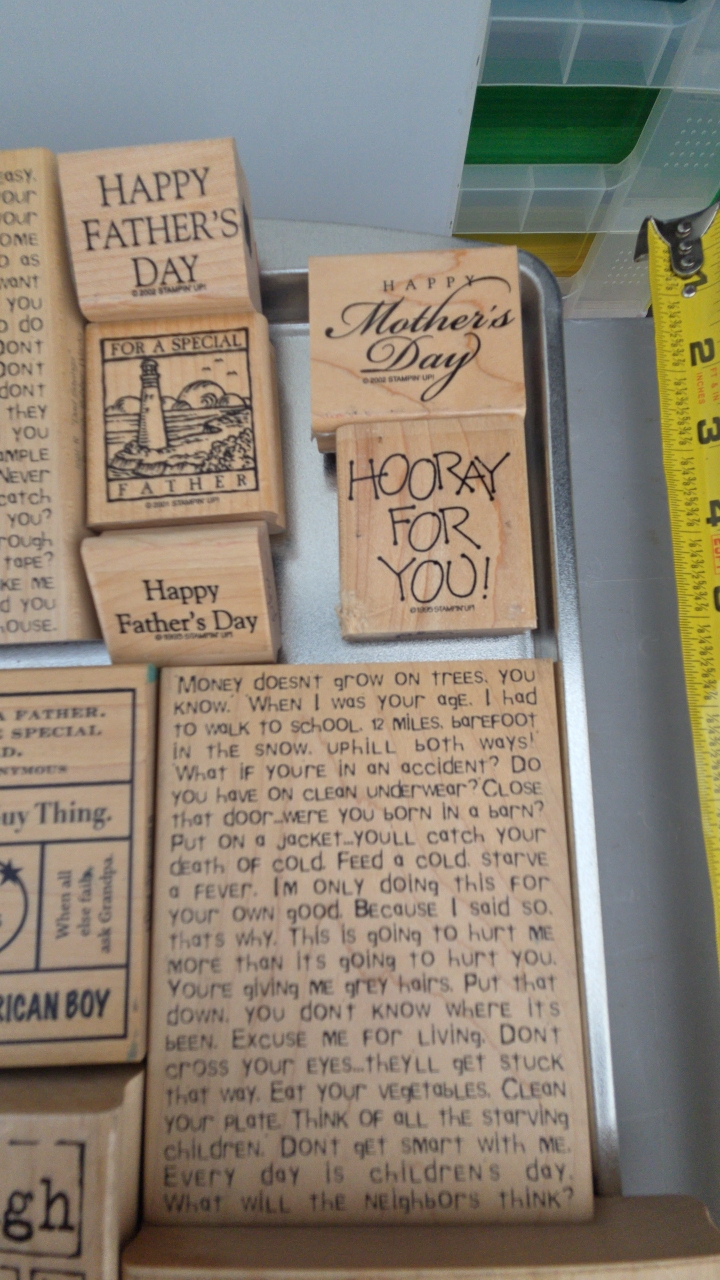 EASY.
YOUR
YOUR
OME
AS
WANT
YOU
DO
DONT
DONT
DONT
THEY
YOU
NEVER
CATCH
YOU?
TAPE?
ME
YOU
HAPPY
FATHER'S
DAY
©2002 STAMPIN' UP!
FOR A SPECIAL
FATHER
©2001 STAMPIN' UP!
Happy
Father's Day
STAMPIN' UP!
HAPPY
Mother's
Day
©2002 STAMPIN' UP!
HOORAY
FOR
YOU!
STAMPIN' UP!
A FATHER.
SPECIAL
D.
NYMOUS
uy Thing.
When all
else fails,
ask Grandpa.
RICAN BOY
gh
MONEY DOESNT GROW ON TREES, YOU
KNOW. WHEN I WAS YOUR AGE, I HAD
TO WALK TO SCHOOL, 12 MILES, BAREFOOT
IN THE SNOW, UPHILL BOTH WAYS!
WHAT IF YOURE IN AN ACCIDENT? DO
YOU HAVE ON CLEAN UNDERWEAR? CLOSE
THAT DOOR...WERE YOU BORN IN A BARN?
PUT ON A JACKET...YOULL CATCH YOUR
DEATH OF COLD. FEED A COLD, STARVE
A FEVER. IM ONLY DOING THIS FOR
YOUR OWN GOOD. BECAUSE I SAID SO,
THATS WHY. THIS IS GOING TO HURT ME
MORE THAN ITS GOING TO HURT YOU.
YOURE GIVING ME GREY HAIRS. PUT THAT
DOWN, YOU DONT KNOW WHERE ITS
BEEN. EXCUSE ME FOR LIVING. DONT
CROSS YOUR EYES...THEYLL GET STUCK
THAT WAY. EAT YOUR VEGETABLES. CLEAN
YOUR PLATE. THINK OF ALL THE STARVING
CHILDREN. DONT GET SMART WITH ME.
EVERY DAY IS CHILDREN'S DAY.
WHAT WILL THE NEIGHBORS THINK?
2
INCHES
3
4